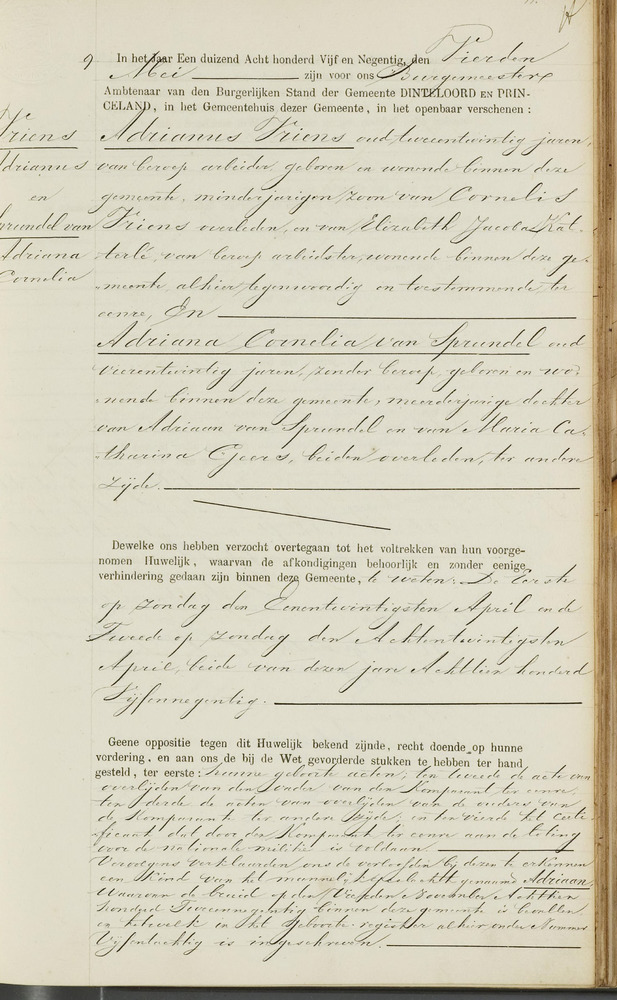 9 In het Jaar Een duizend Acht honderd Vijf en Negentig, den Vierden
Mei zijn voor ons Burgemeester
Ambtenaar van den Burgerlijken Stand der Gemeente DINTELOORD EN PRIN-
CELAND, in het Gemeentehuis dezer Gemeente, in het openbaar verschenen:
Adrianus Friens oud tweeentwintig jaren,
van beroep arbeider, geboren en wonende binnen deze
gemeente, minderjarigen zoon van Cornelis
Friens overleden, en van Elizabeth Jacoba Kat-
terlé, van beroep arbeidster, wonende binnen deze ge-
meente, alhier tegenwoordig en toestemmende, ter
eenre, En
Adriana Cornelia van Sprundel oud
vierentwintig jaren, zonder beroep, geboren en wo-
nende binnen deze gemeente, meerderjarige dochter
van Adriaan van Sprundel en van Maria Ca-
tharina Geers, beiden overleden, ter andere
zijde.
Friens
Adrianus
en
Sprundel van
Adriana
Cornelia
Dewelke ons hebben verzocht overtegaan tot het voltrekken van hun voorge-
nomen Huwelijk, waarvan de afkondigingen behoorlijk en zonder eenige
verhindering gedaan zijn binnen deze Gemeente, te weten: De Eerste
op Zondag den Eenentwintigsten April en de
Tweede op Zondag den Achtentwintigsten
April, beide van dezen jare Achttien honderd
Vijfennegentig.
Geene oppositie tegen dit Huwelijk bekend zijnde, recht doende op hunne
vordering, en aan ons de bij de Wet gevorderde stukken te hebben ter hand
gesteld, ter eerste: hunne geboorte acten, ten tweede de acte van
overlijden van den vader van den Komparant ter eenre,
ten derde de acten van overlijden van de ouders van
de Komparante ter andere zijde, en ten vierde het certi-
ficaat dat door den Komparant ter eenre aan de loting
voor de nationale militie is voldaan.
Vervolgens verklaarden ons de verloofden bij dezen te erkennen
een Kind van het mannelijk geslacht genaamd Adriaan,
Waarvan de bruid op den Vierden November Achttien
honderd Tweeennegentig binnen deze gemeente is bevallen
en hetwelk in het Geboorte register alhier onder Nummer
Vijfentachtig is ingeschreven.